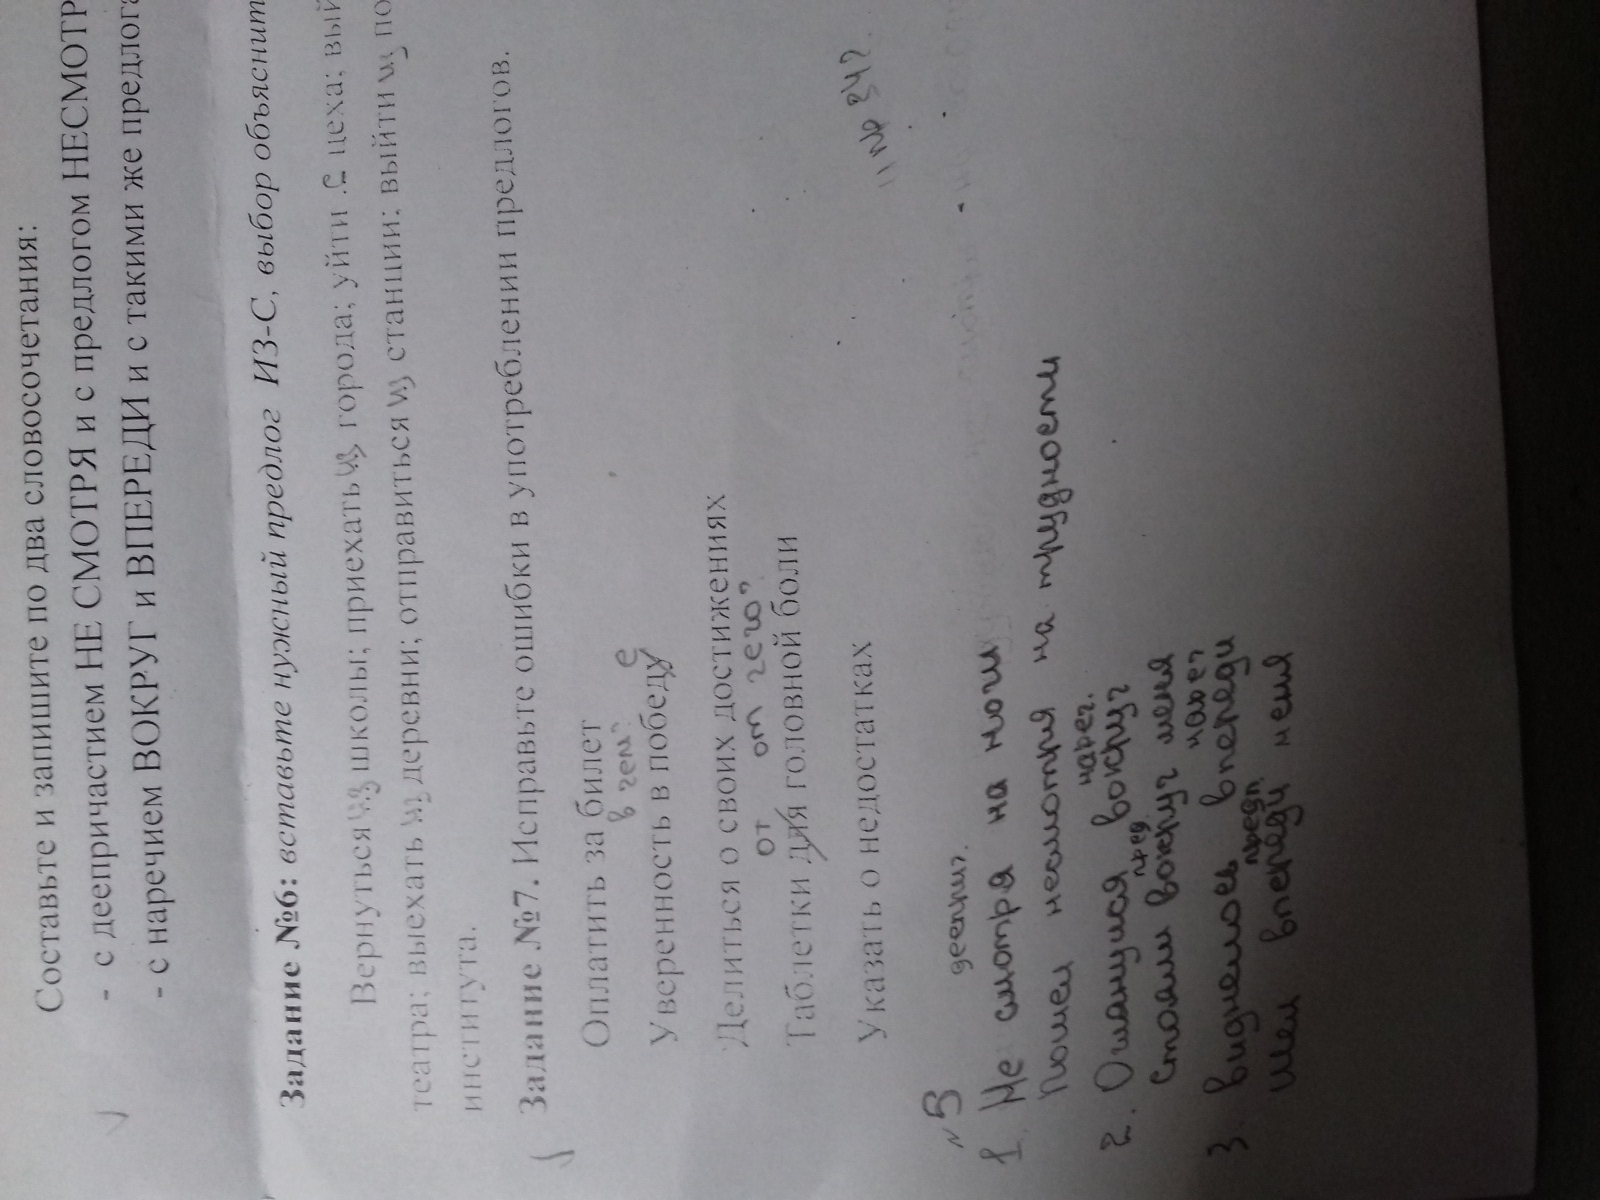 Составьте и запишите по два словосочетания:
- с деепричастием НЕ СМОТРЯ и с предлогом НЕСМОТР
- с наречием ВОКРУГ и ВПЕРЕДИ и с такими же предлога
Задание №6: вставьте нужный предлог ИЗ-С, выбор объяснит
Вернуться из школы; приехать из города; уйти с цеха; вый
театра; выехать из деревни; отправиться из станции; выйти из по
института.
Задание №7. Исправьте ошибки в употреблении предлогов.
Оплатить за билет
в чем? е
Уверенность в победу
Делиться о своих достижениях
от от чего?
Таблетки для головной боли
Указать о недостатках
11 пр 342.
№5 дееприч.
1. Не смотря на ноги
Пошел несмотря на трудности
нареч.
2. Оглянулся вокруг
пред
Стоял вокруг меня
нареч
3. Виднелось впереди
предл.
Шел впереди меня